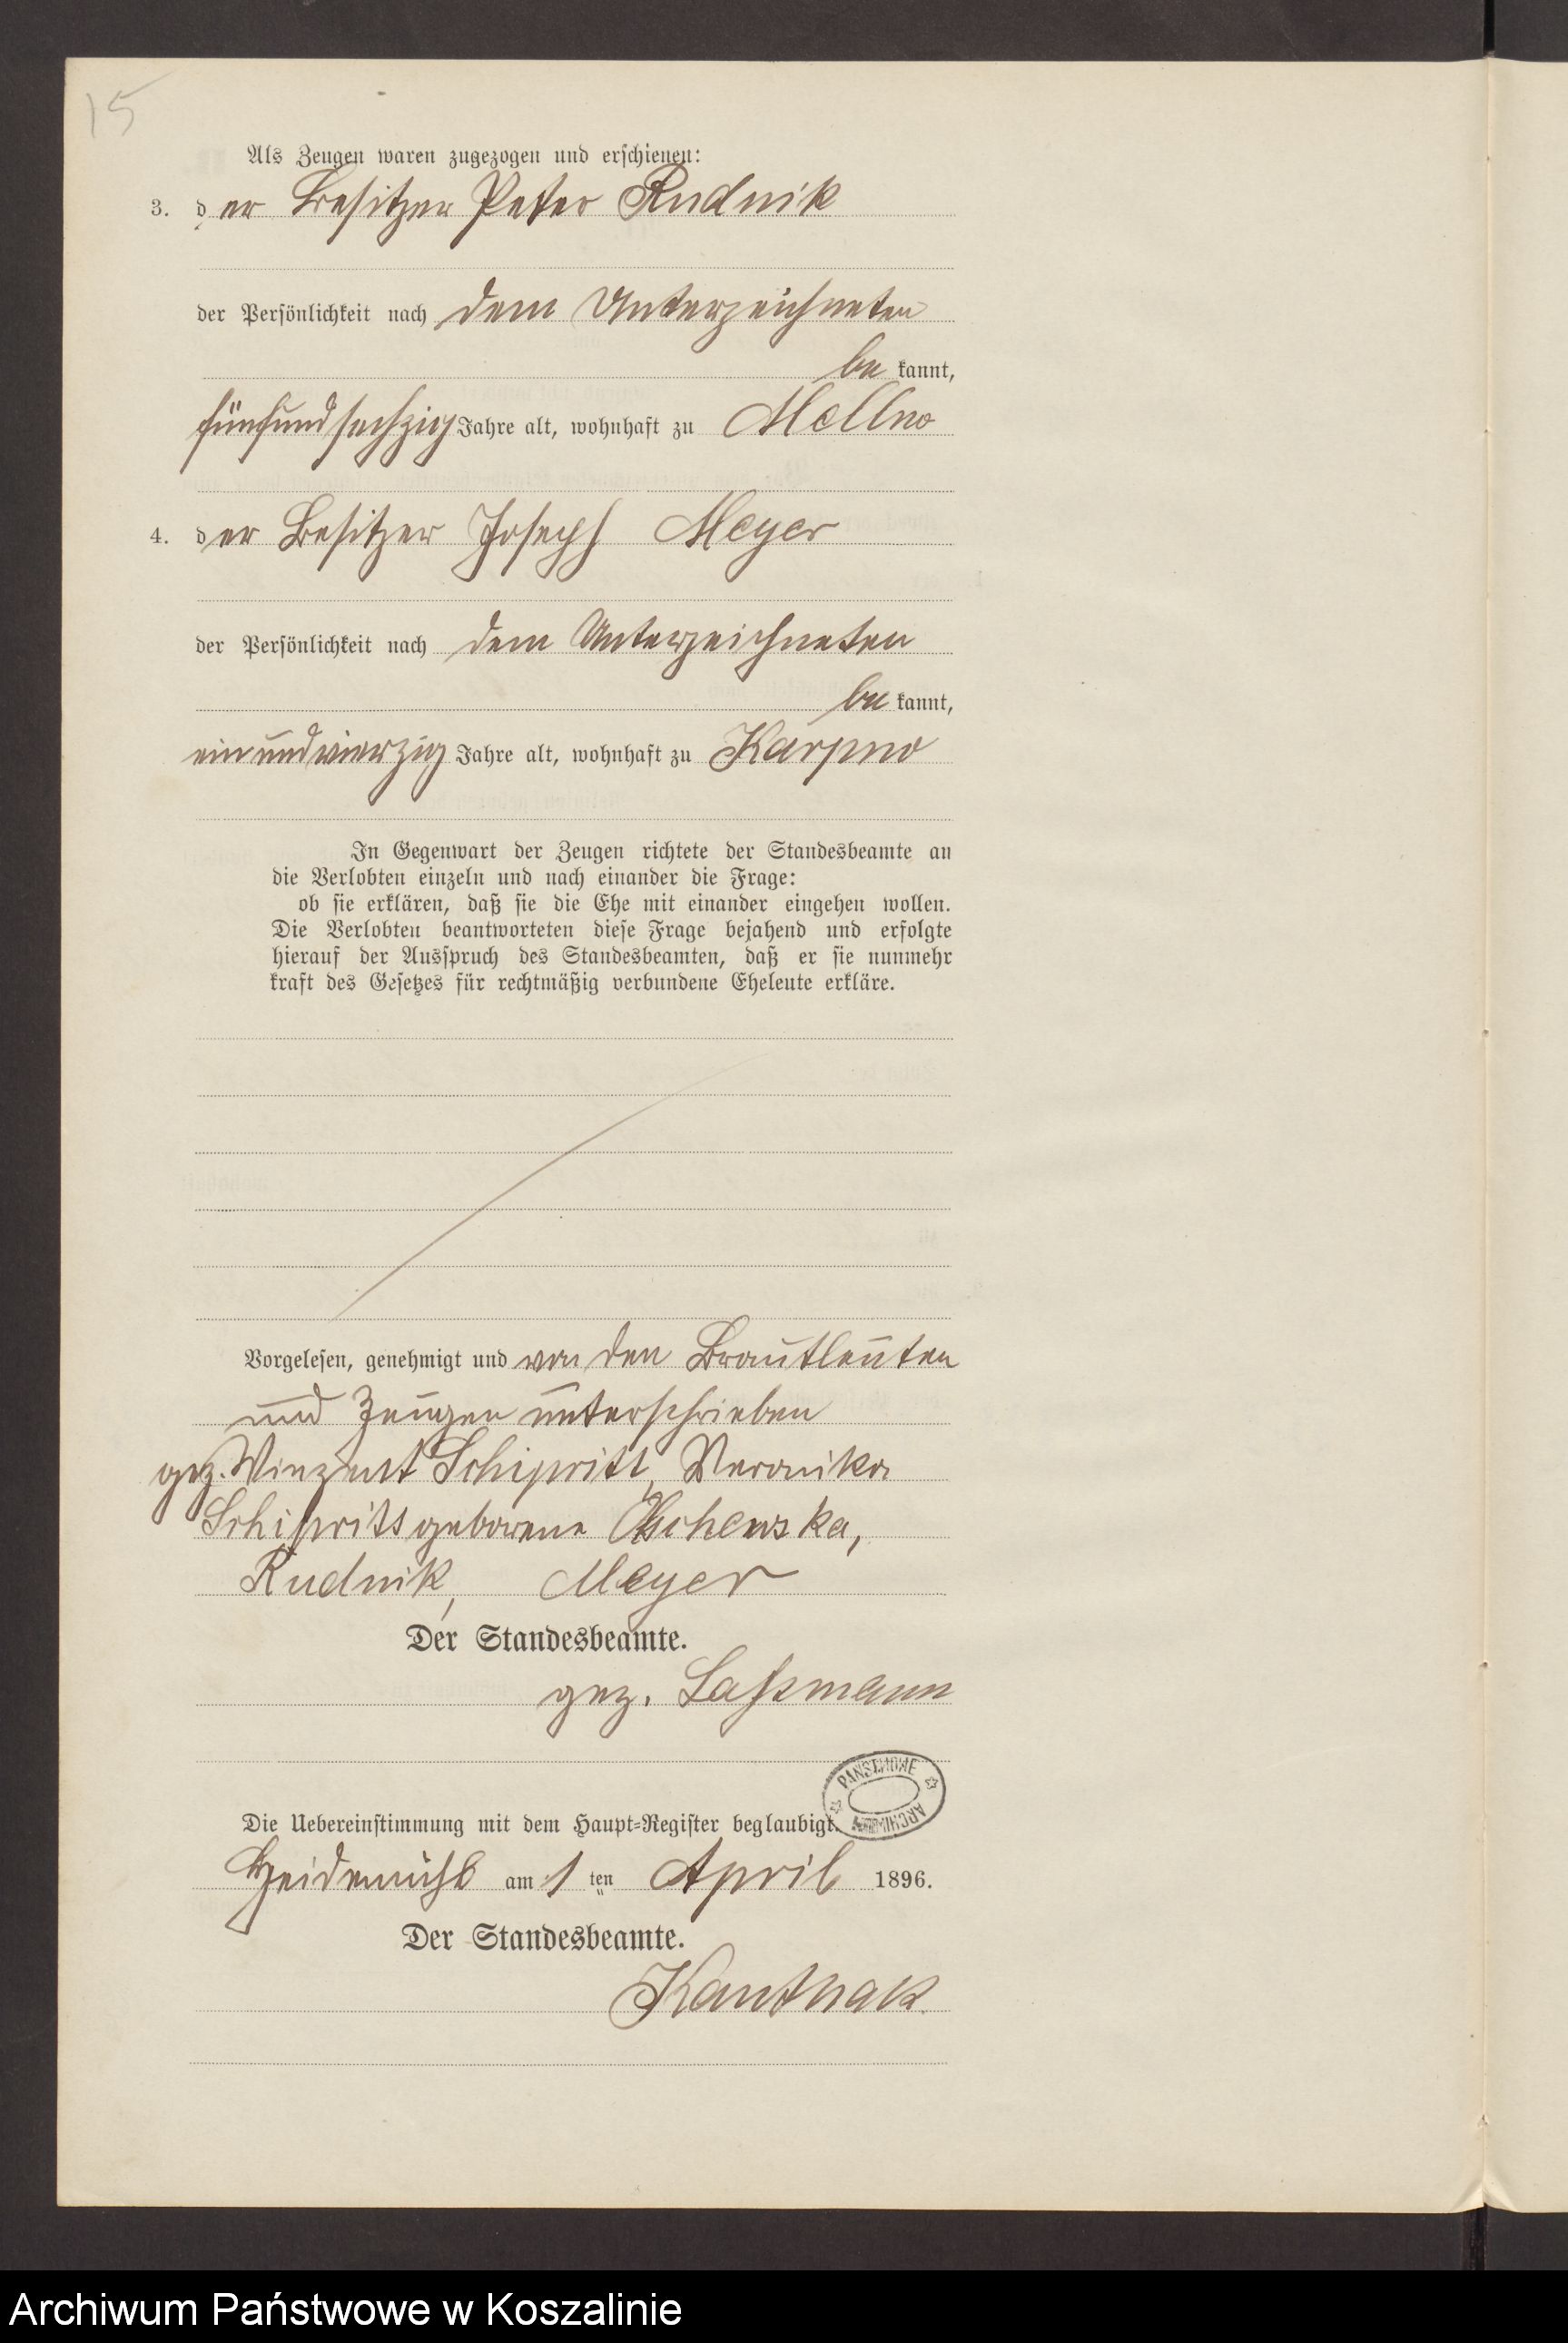 15
Als Zeugen waren zugezogen und erschienen:
3. der Besitzer Peter Rudnik
der Persönlichkeit nach dem Unterzeichneten
be kannt,
fünfundsechzig Jahre alt, wohnhaft zu Mellno
4. der Besitzer Joseph Meyer
der Persönlichkeit nach dem Unterzeichneten
be kannt,
einundvierzig Jahre alt, wohnhaft zu Karpno
In Gegenwart der Zeugen richtete der Standesbeamte an
die Verlobten einzeln und nach einander die Frage:
ob sie erklären, daß sie die Ehe mit einander eingehen wollen.
Die Verlobten beantworteten diese Frage bejahend und erfolgte
hierauf der Ausspruch des Standesbeamten, daß er sie nunmehr
kraft des Gesetzes für rechtmäßig verbundene Eheleute erkläre.
Vorgelesen, genehmigt und von den Brautleuten
und Zeugen unterschrieben
gez. Winzent Schipritt, Veronika
Schipritt geborene
Rudnik, Meyer
Der Standesbeamte.
gez. Laßmann
PAŃSTWOWE ARCHIWUM
Die Uebereinstimmung mit dem Haupt-Register beglaubigt.
Heidemühl am 1 ten April 1896.
Der Standesbeamte.
Kanthak
Archiwum Państwowe w Koszalinie